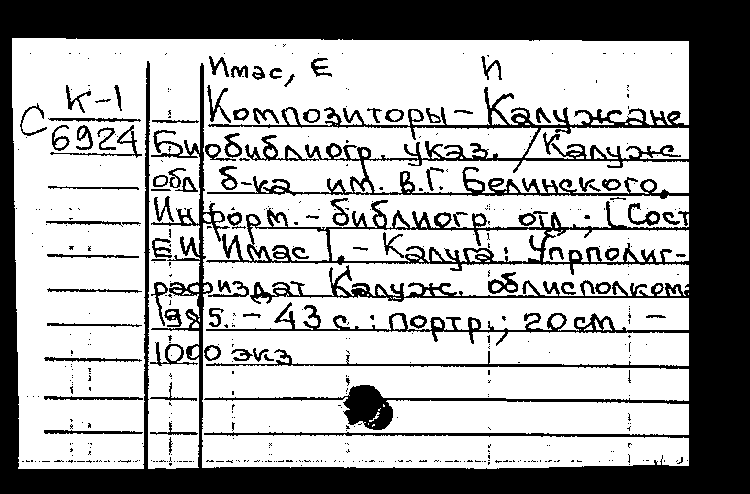 Имас, Е И
К-1
Композиторы - Калужане
С
6924
Биобиблиогр. указ. / Калуж
обл б-ка им. В.Г. Белинского.
Информ. - библиогр отд.; [Сост
Е.И Имас]. - Калуга: Упрполиг-
рафиздат Калуж. облисполкома
1985. - 43 с.: портр.; 20 см. -
1000 экз